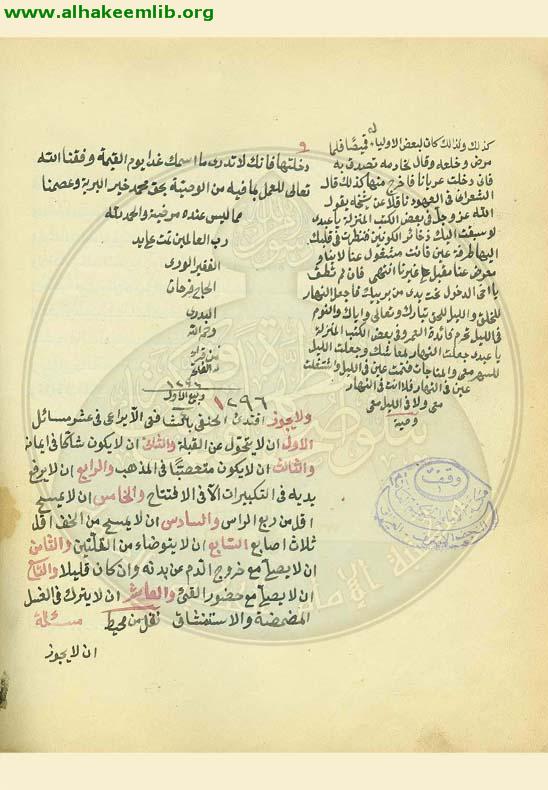 www.alhakeemlib.org
كذلك ولذلك كان لبعض الاولياء له قميصًا فلما
مرض وخلعه وقال لخادمه تصدق به
فانى دخلت عريانا فاخرج منها كذلك قال
الشعرانى فى العهود ناقلا عن شيخه يقول
الله عز وجل فى بعض الكتب المنزلة يا عبدى
لو سيقت اليك ذخائر الكونين فنظرت فى قلبك
اليها طرفة عين فانت مشغول عنا لا بنا و
معرض عنا مقبل غيرنا انتهى فان لم تطف
يا اخى الدخول تحت يدى من يربيك فما جعل النهار
للخلق والليل للحق تبارك وتعالى واياك والنوم
فى الليل تحرم فائدة العمر وفى بعض الكتب المنزلة
يا عبدى جعلت النهار لمعاشك وجعلت الليل
للسهر معى والمناجات فنمت عين فى الليل واشتغلت
عين فى النهار فلا انت فى النهار
معى ولا فى الليل معى
وصية
٩
دخلتها فانك لا تدرى ما اسمك غدا يوم القيمة وفقنا الله
تعالى للعمل بما فيه من الوصية بحق محمد خير البرية وعصمنا
مما ليس عنده مرضية والحمد لله
رب العالمين تمت على يد
الفقير الورى
الحاج فرحات
رحم الله
من قراء
١٢٩٦
ربيع الاول
١٢٩٦
ولا يجوز اقتدى الحنفى فى عشر مسائل
الاول ان لا يتحول عن القبلة والثانى ان لا يكون شاكا فى ايمانه
والثالث ان لا يكون متعصبًا فى المذهب والرابع ان لا يرفع
يديه فى التكبيرات الا فى الافتتاح والخامس ان لا يمسح
اقل من ربع الراس والسادس ان لا يمسح من الخف اقل
ثلاث اصابع السابع ان لا يتوضاء من القلتين والثامن
ان لا يصلى مع خروج الدم عن بدنه وان كان قليلا والتاسع
ان لا يصلى مع حضور القئ والعاشر ان لا يترك فى الغسل
المضمضة والاستنشاق نقل من محيط مسئلة
ان لا يجوز
وقف